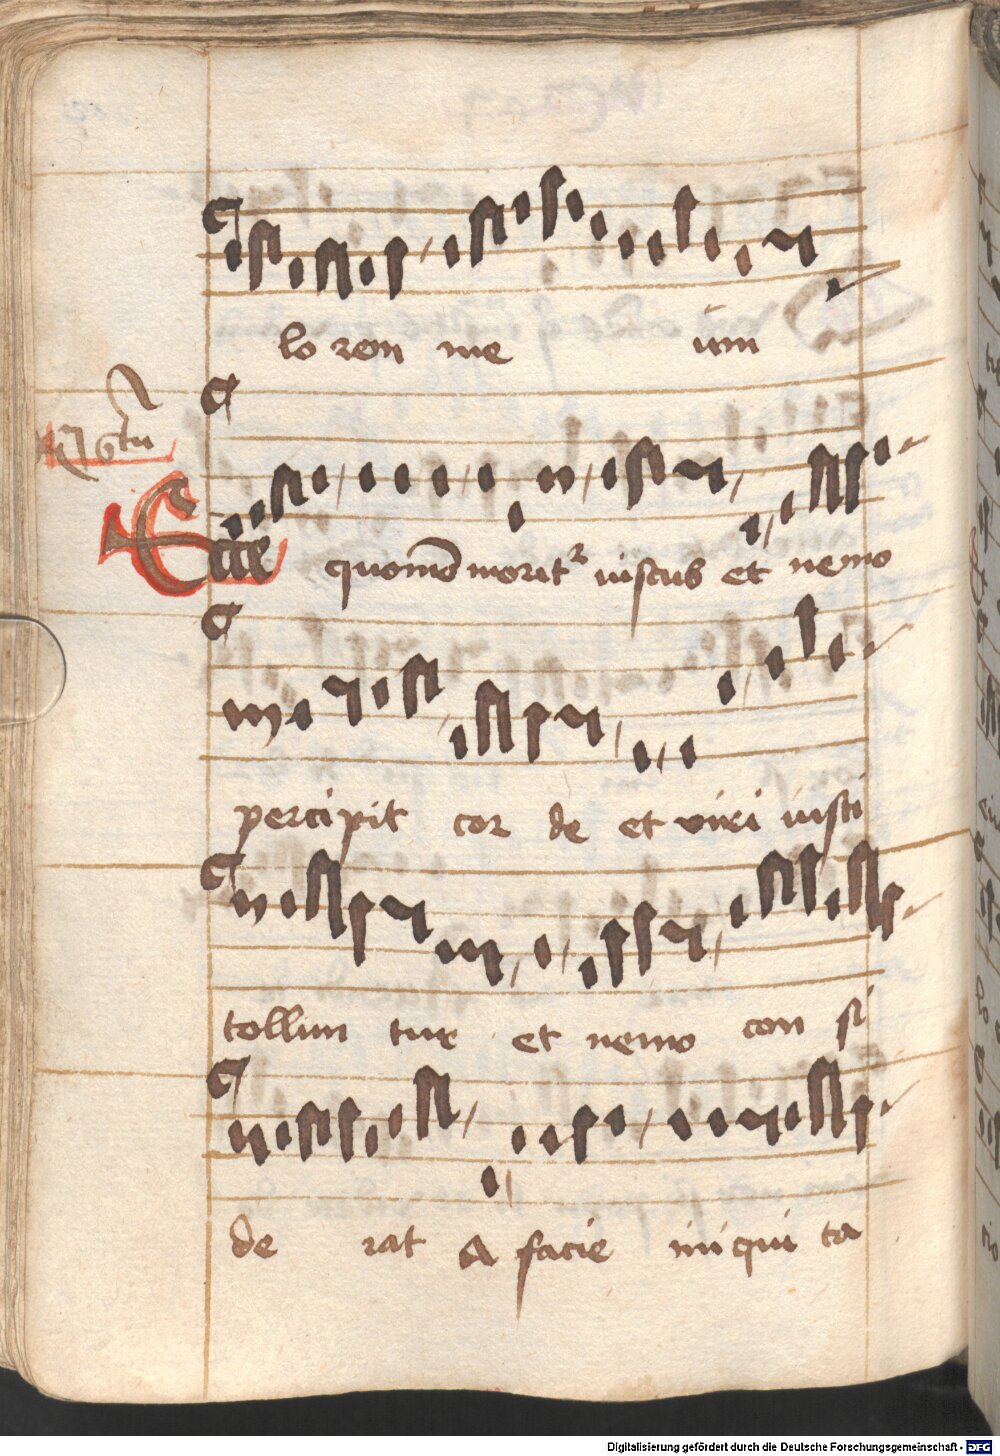 lo rem me um
Ecce quomo morit iustus et nemo
percipit cor de et viri iusti
tollun tur et nemo con si
de rat A facie iniqui ta
Digitalisierung gefördert durch die Deutsche Forschungsgemeinschaft - DFG